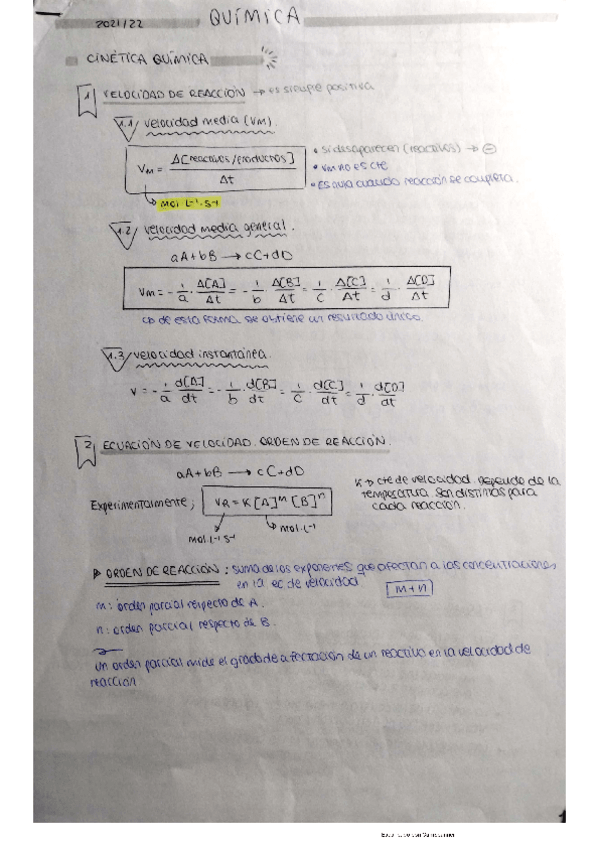 2021/22
QUÍMICA
CINÉTICA QUÍMICA
1 VELOCIDAD DE REACCIÓN → es siempre positiva
1.1 velocidad media (Vm).
Vm = Δ[reactivos/productos] / Δt
• si desaparecen (reactivos) → ⊖
• Vm no es cte
• Es nula cuando reacción se completa.
mol·L⁻¹·s⁻¹
1.2 velocidad media general.
aA + bB → cC + dD
Vm = - 1/a · Δ[A]/Δt = - 1/b · Δ[B]/Δt = 1/c · Δ[C]/Δt = 1/d · Δ[D]/Δt
de esta forma se obtiene un resultado único.
1.3 velocidad instantánea.
V = - 1/a · d[A]/dt = - 1/b · d[B]/dt = 1/c · d[C]/dt = 1/d · d[D]/dt
2 ECUACIÓN DE VELOCIDAD. ORDEN DE REACCIÓN.
aA + bB → cC + dD
Experimentalmente; VR = K [A]ᵐ [B]ⁿ
mol·L⁻¹ s⁻¹
mol·L⁻¹
K → cte de velocidad. Depende de la
temperatura. Son distintas para
cada reacción.
▶ ORDEN DE REACCIÓN: suma de los exponentes que afectan a las concentraciones
en la ec de velocidad m+n
m: orden parcial respecto de A.
n: orden parcial respecto de B.
un orden parcial mide el grado de afectación de un reactivo en la velocidad de
reacción